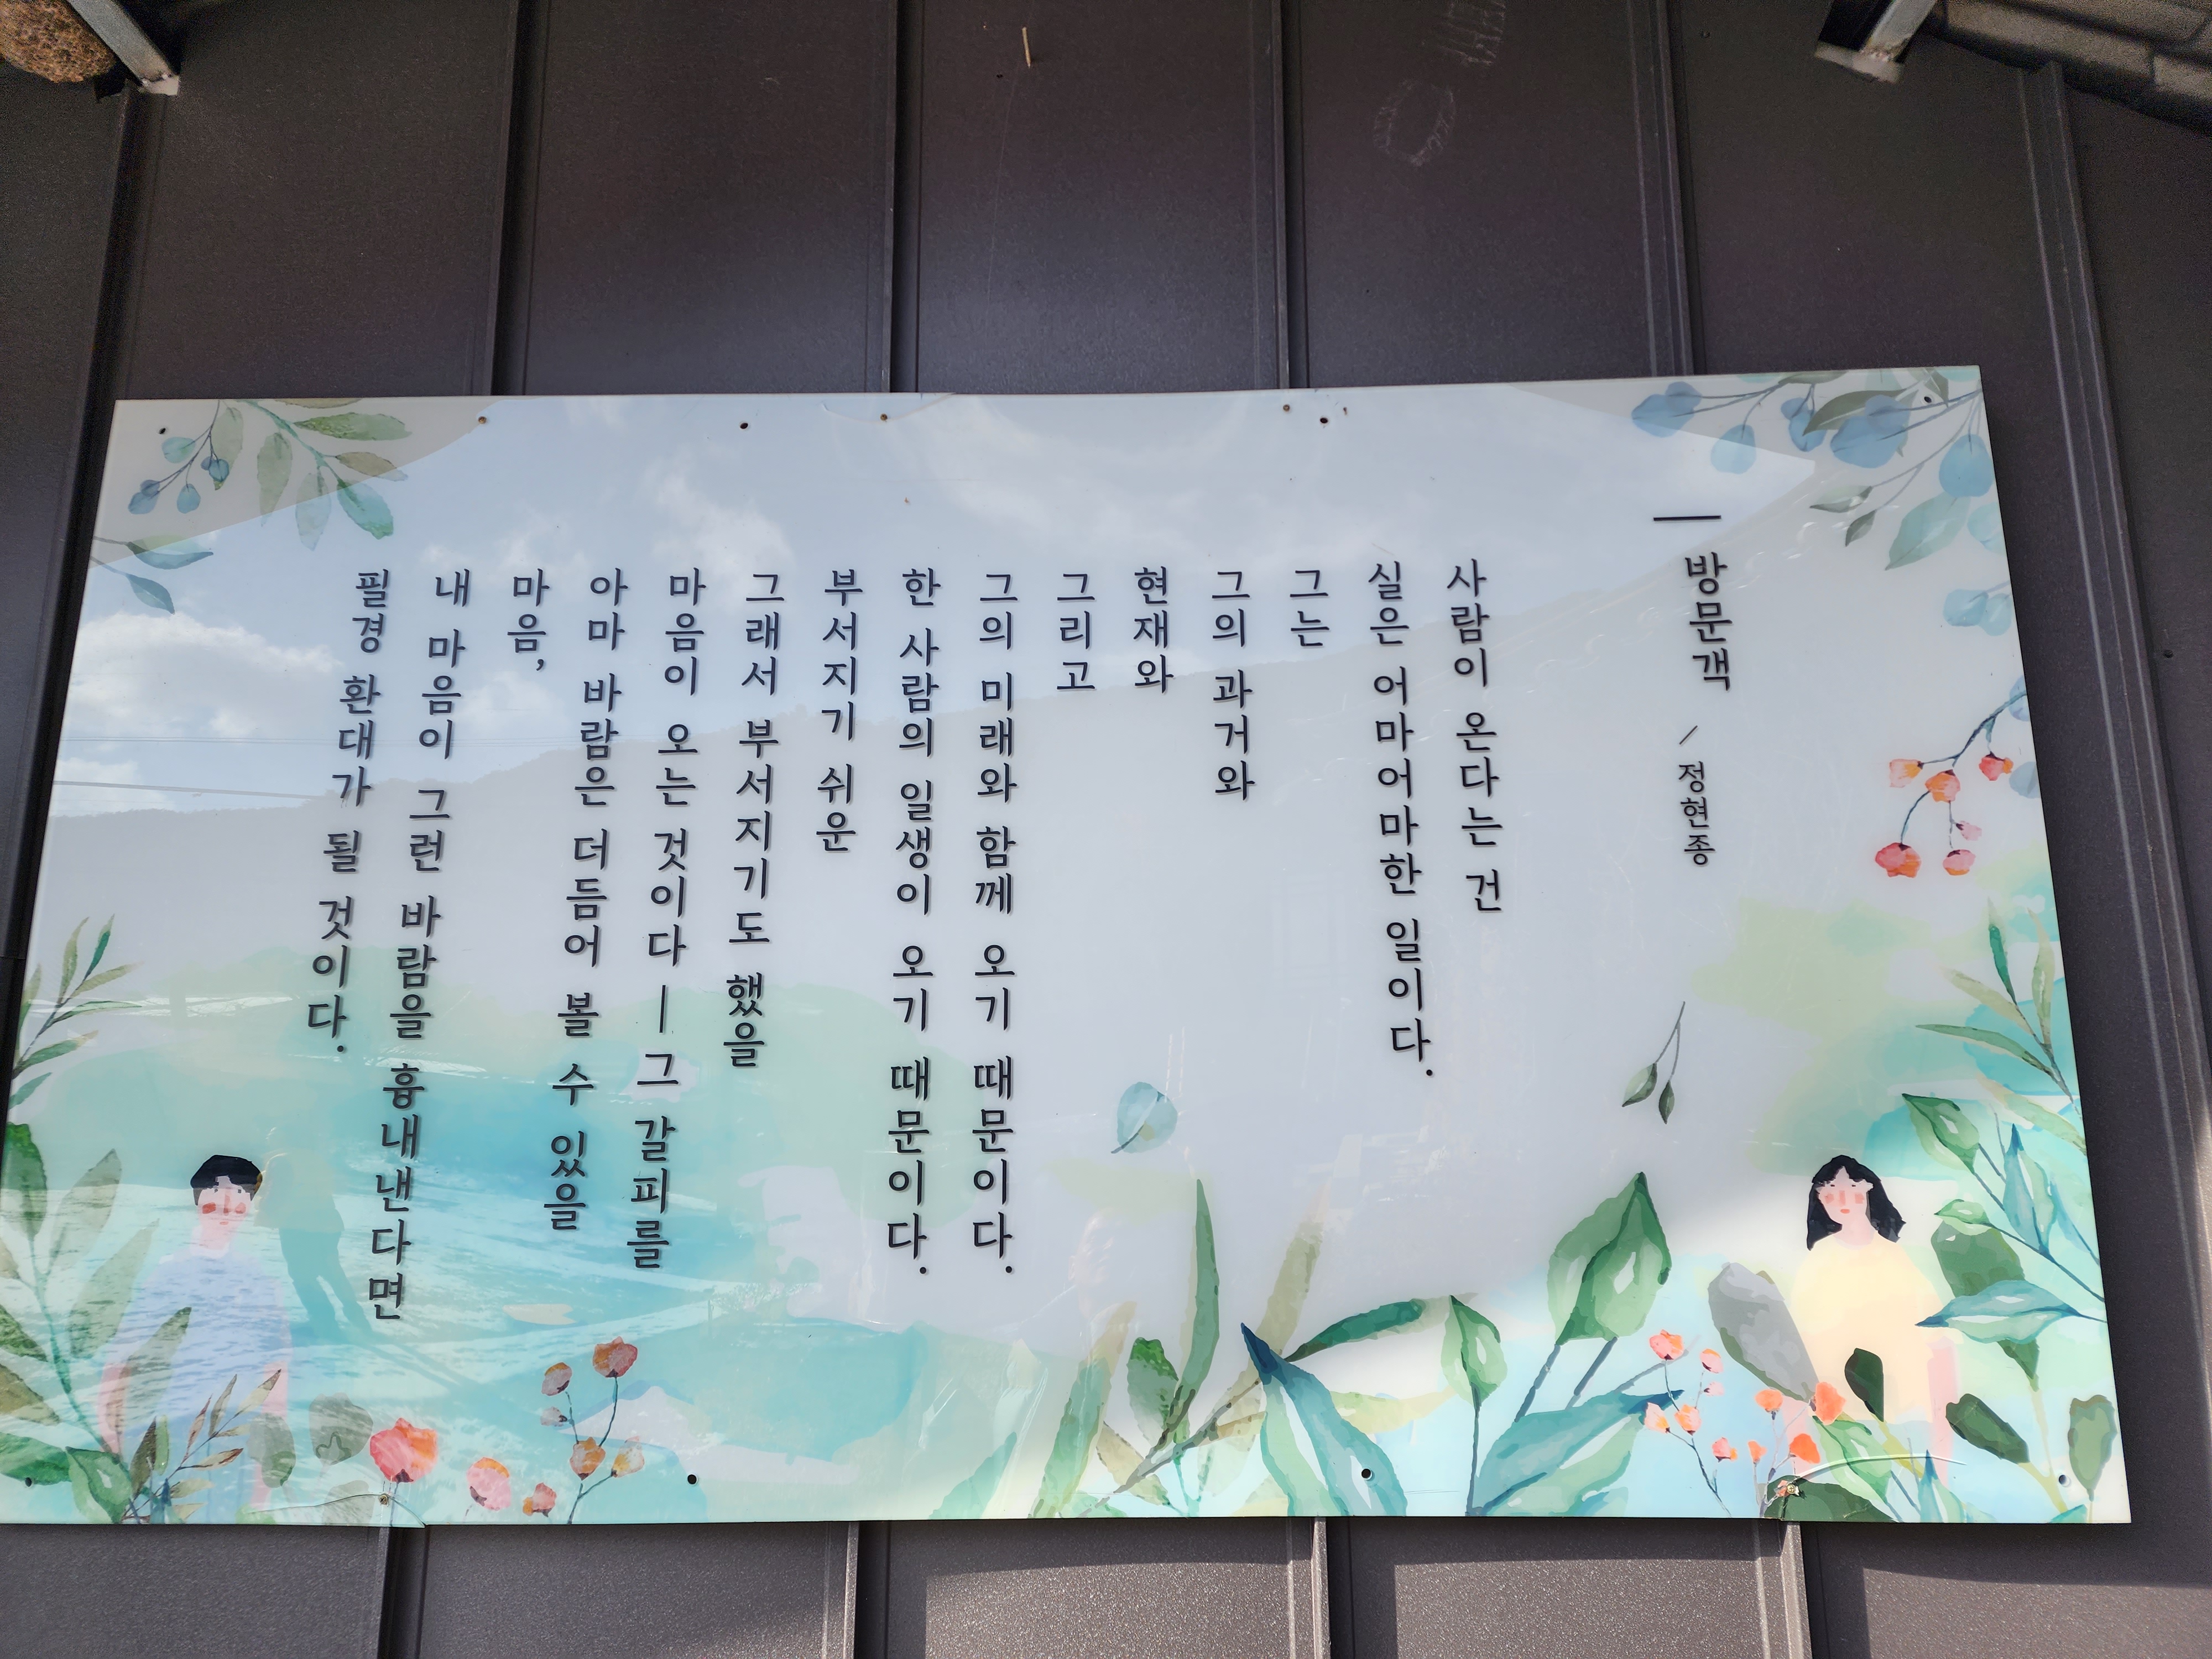 방문객 / 정현종
사람이 온다는 건
실은 어마어마한 일이다.
그는
그의 과거와
현재와
그리고
그의 미래와 함께 오기 때문이다.
한 사람의 일생이 오기 때문이다.
부서지기 쉬운
그래서 부서지기도 했을
마음이 오는 것이다 ㅡ 그 갈피를
아마 바람은 더듬어 볼 수 있을
마음,
내 마음이 그런 바람을 흉내낸다면
필경 환대가 될 것이다.